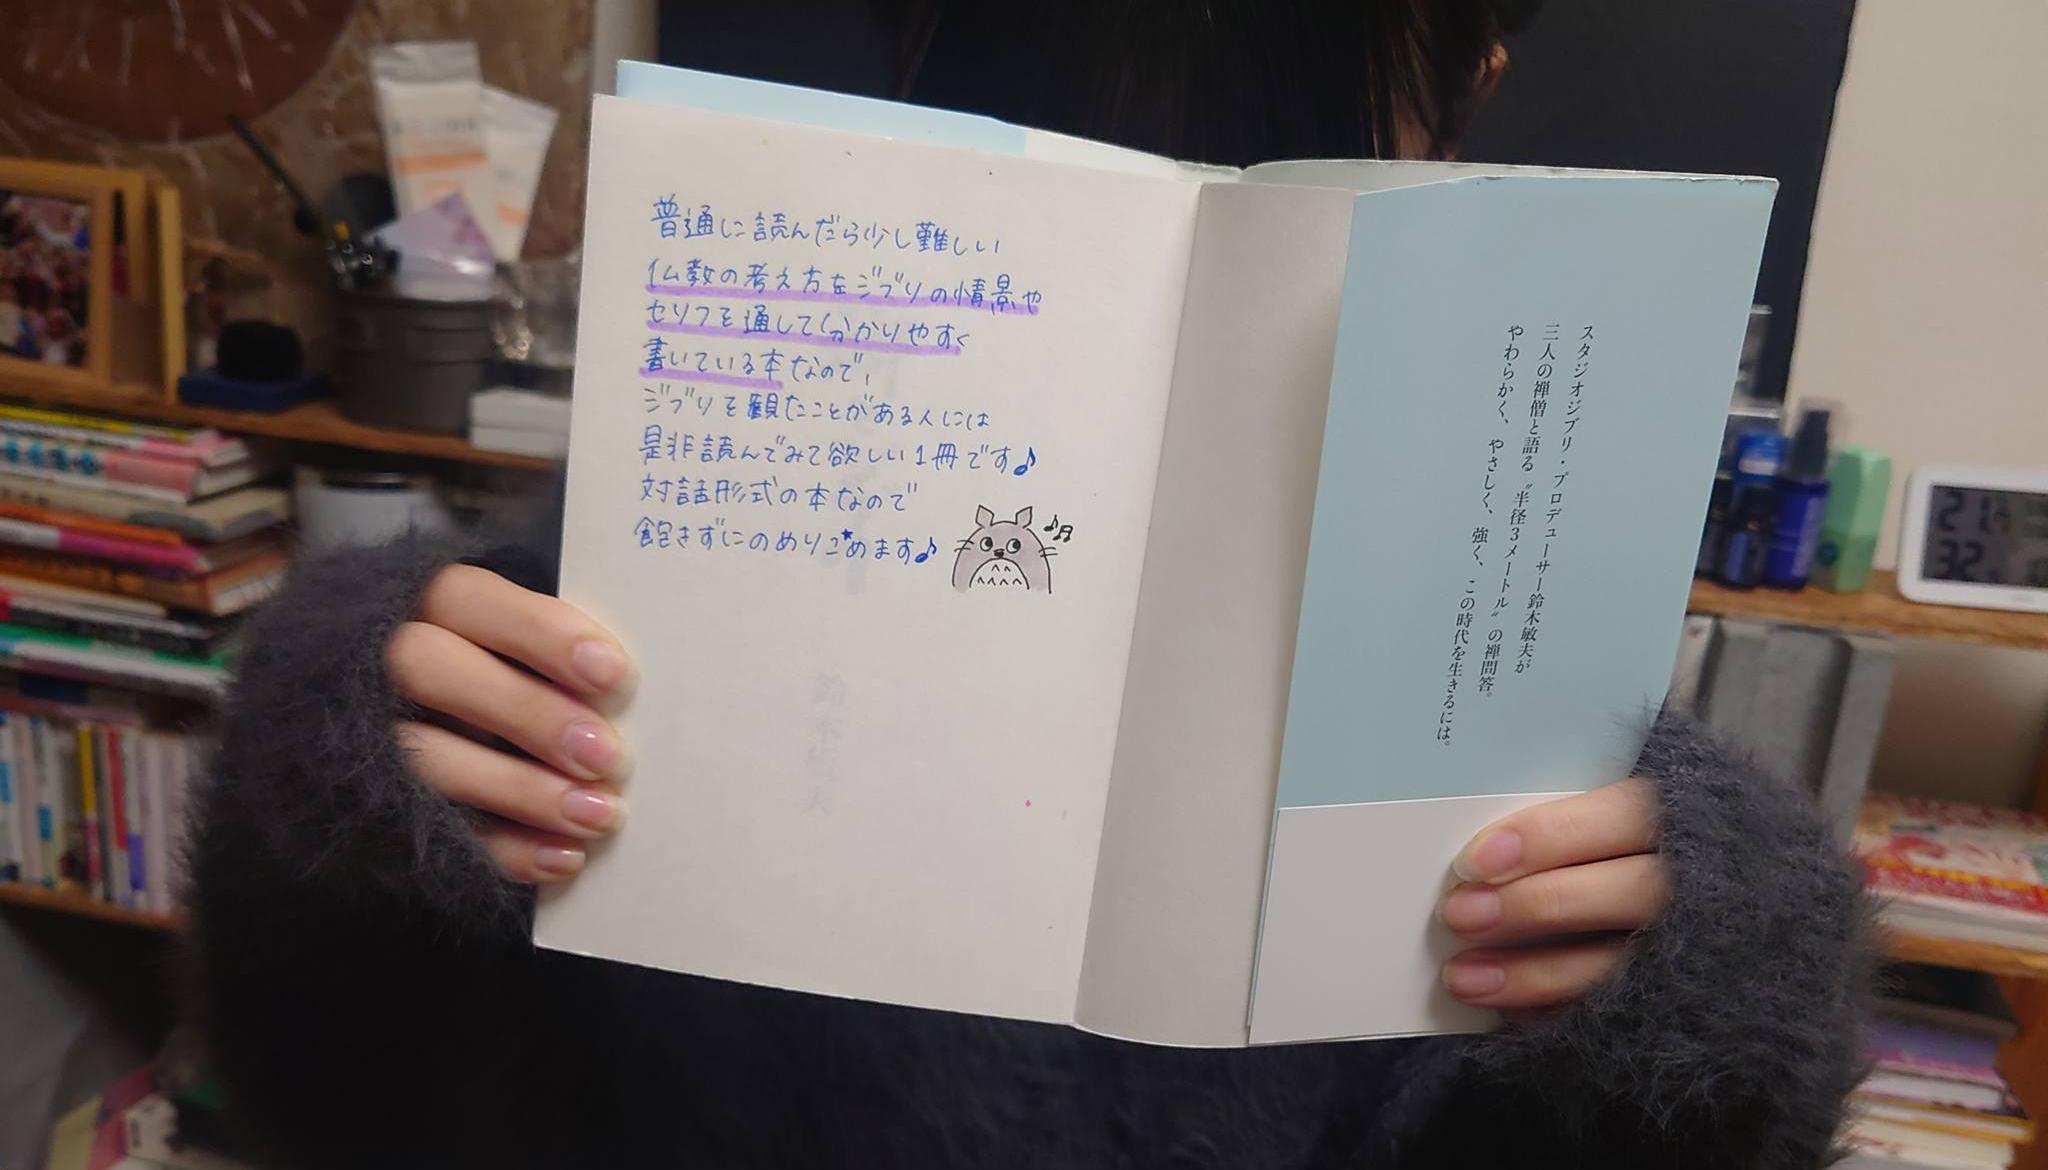 普通に読んだら少し難しい
仏教の考え方をジブリの情景や
セリフを通して分かりやすく
書いている本なので、
ジブリを観たことがある人には
是非読んでみて欲しい1冊です♪
対話形式の本なので
飽きずにのめりこめます♪
スタジオジブリ・プロデューサー鈴木敏夫が
三人の禅僧と語る〝半径3メートル〟の禅問答。
やわらかく、やさしく、強く、この時代を生きるには。
鈴木敏夫